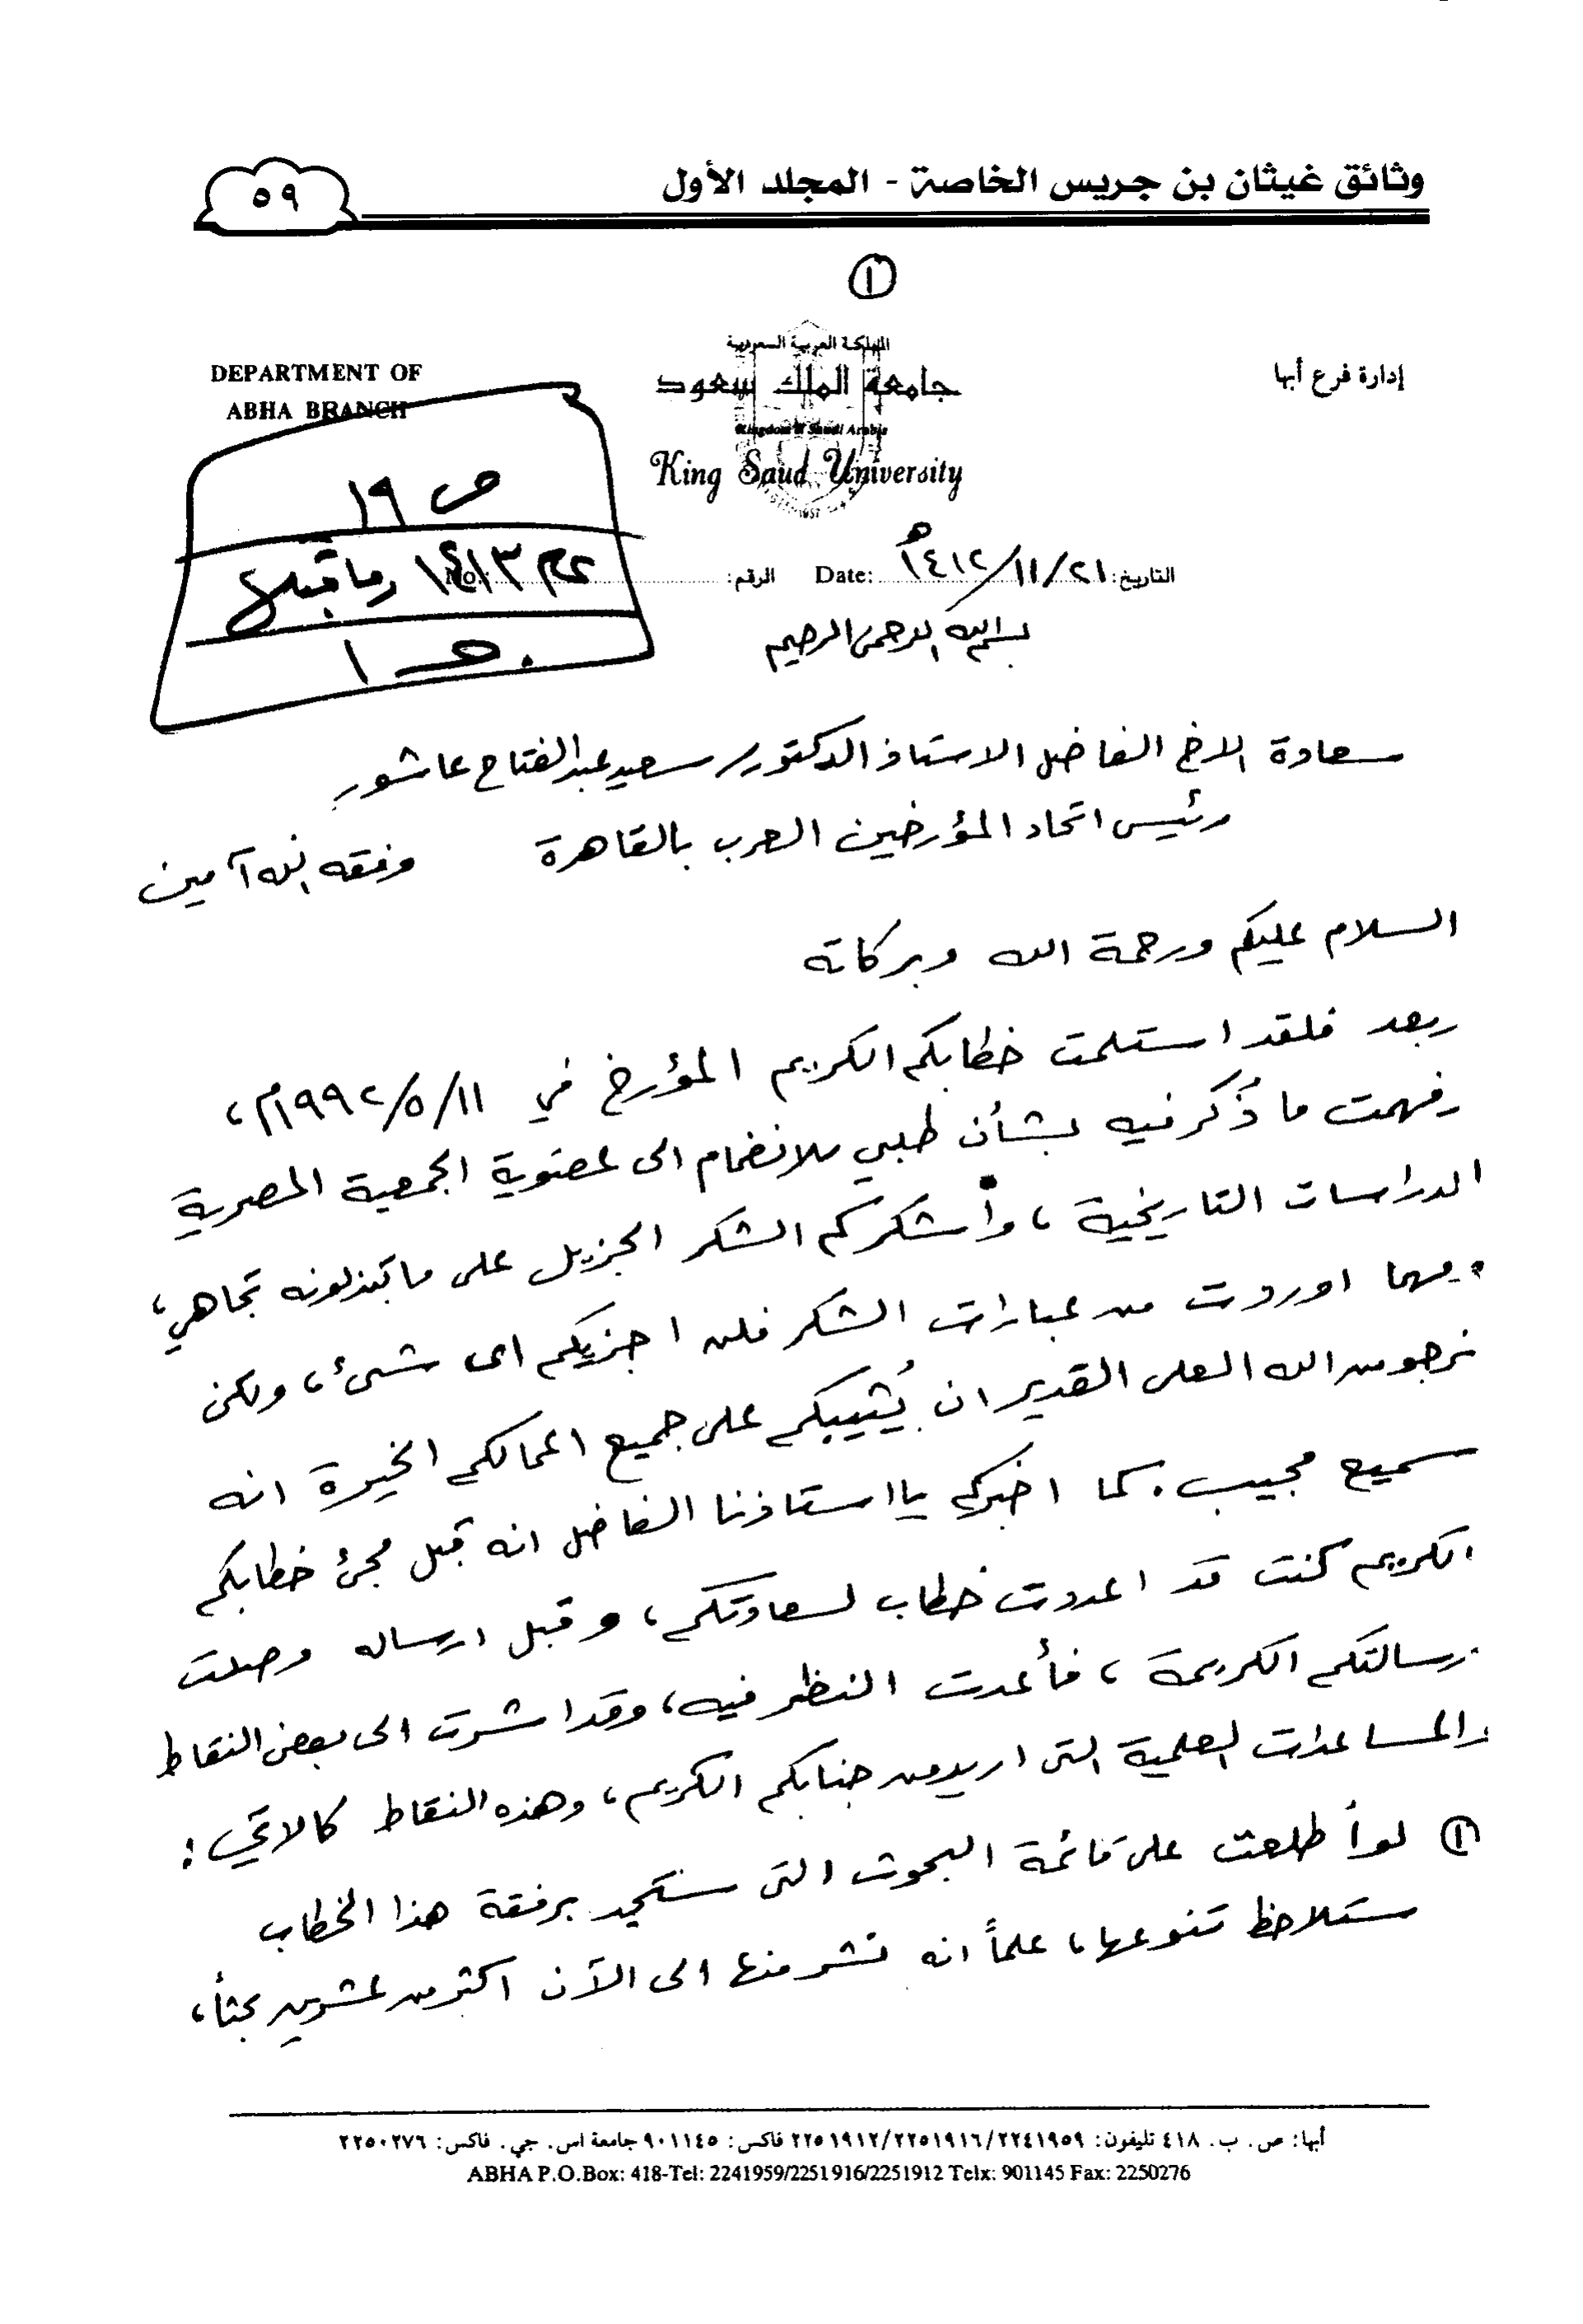 وثائق غيثان بن جريس الخاصة - المجلد الأول
٥٩
١
إدارة فرع أبها
المملكة العربية السعودية
جامعة الملك سعود
Kingdom of Saudi Arabia
King Saud University
1957
DEPARTMENT OF
ABHA BRANCH
ص ١٩
عام ١٤١٣ وما قبلها
هـ ١
التاريخ: ١٤١٢/١١/٢١هـ Date: الرقم: No.:
بسم الله الرحمن الرحيم
سعادة الاخ الفاضل الاستاذ الدكتور/ سعيد عبدالفتاح عاشور
رئيس اتحاد المؤرخين العرب بالقاهرة وفقه الله آمين
السلام عليكم ورحمة الله وبركاته
وبعد فلقد استلمت خطابكم الكريم المؤرخ في ١٩٩٢/٥/١١م،
وفهمت ما ذُكر فيه بشأن طلبي للانضمام الى عضوية الجمعية المصرية
الدراسات التاريخية، وأشكركم الشكر الجزيل على ما تبذلونه تجاهي،
ومهما اوردت من عبارات الشكر فلن اجزيكم اى شىء، ولكن
نرجو من الله العلى القدير ان يُثيبكم على جميع اعمالكم الخيرة انه
سميع مجيب. كما اخبركم يا استاذنا الفاضل انه قبل مجئ خطابكم
الكريم كنت قد اعددت خطاب لسعادتكم، وقبل ارساله وصلت
رسالتكم الكريمة، فأعدت النظر فيه، وقد اشرت الى بعض النقاط
والمساعدات العلمية التى اريد من جنابكم الكريم، وهذه النقاط كالاتي:
① لو أطلعت على قائمة البحوث التى ستجد برفقة هذا الخطاب
ستلاحظ تنوعها، علماً انه نشر منها الى الآن اكثر من عشرين بحثاً،
أبها: ص. ب. ٤١٨ تليفون: ٢٢٤١٩٥٩/٢٢٥١٩١٦/٢٢٥١٩١٢ فاكس: ٩٠١١٤٥ جامعة اس. جي. فاكس: ٢٢٥٠٢٧٦
ABHA P.O.Box: 418-Tel: 2241959/2251916/2251912 Telx: 901145 Fax: 2250276